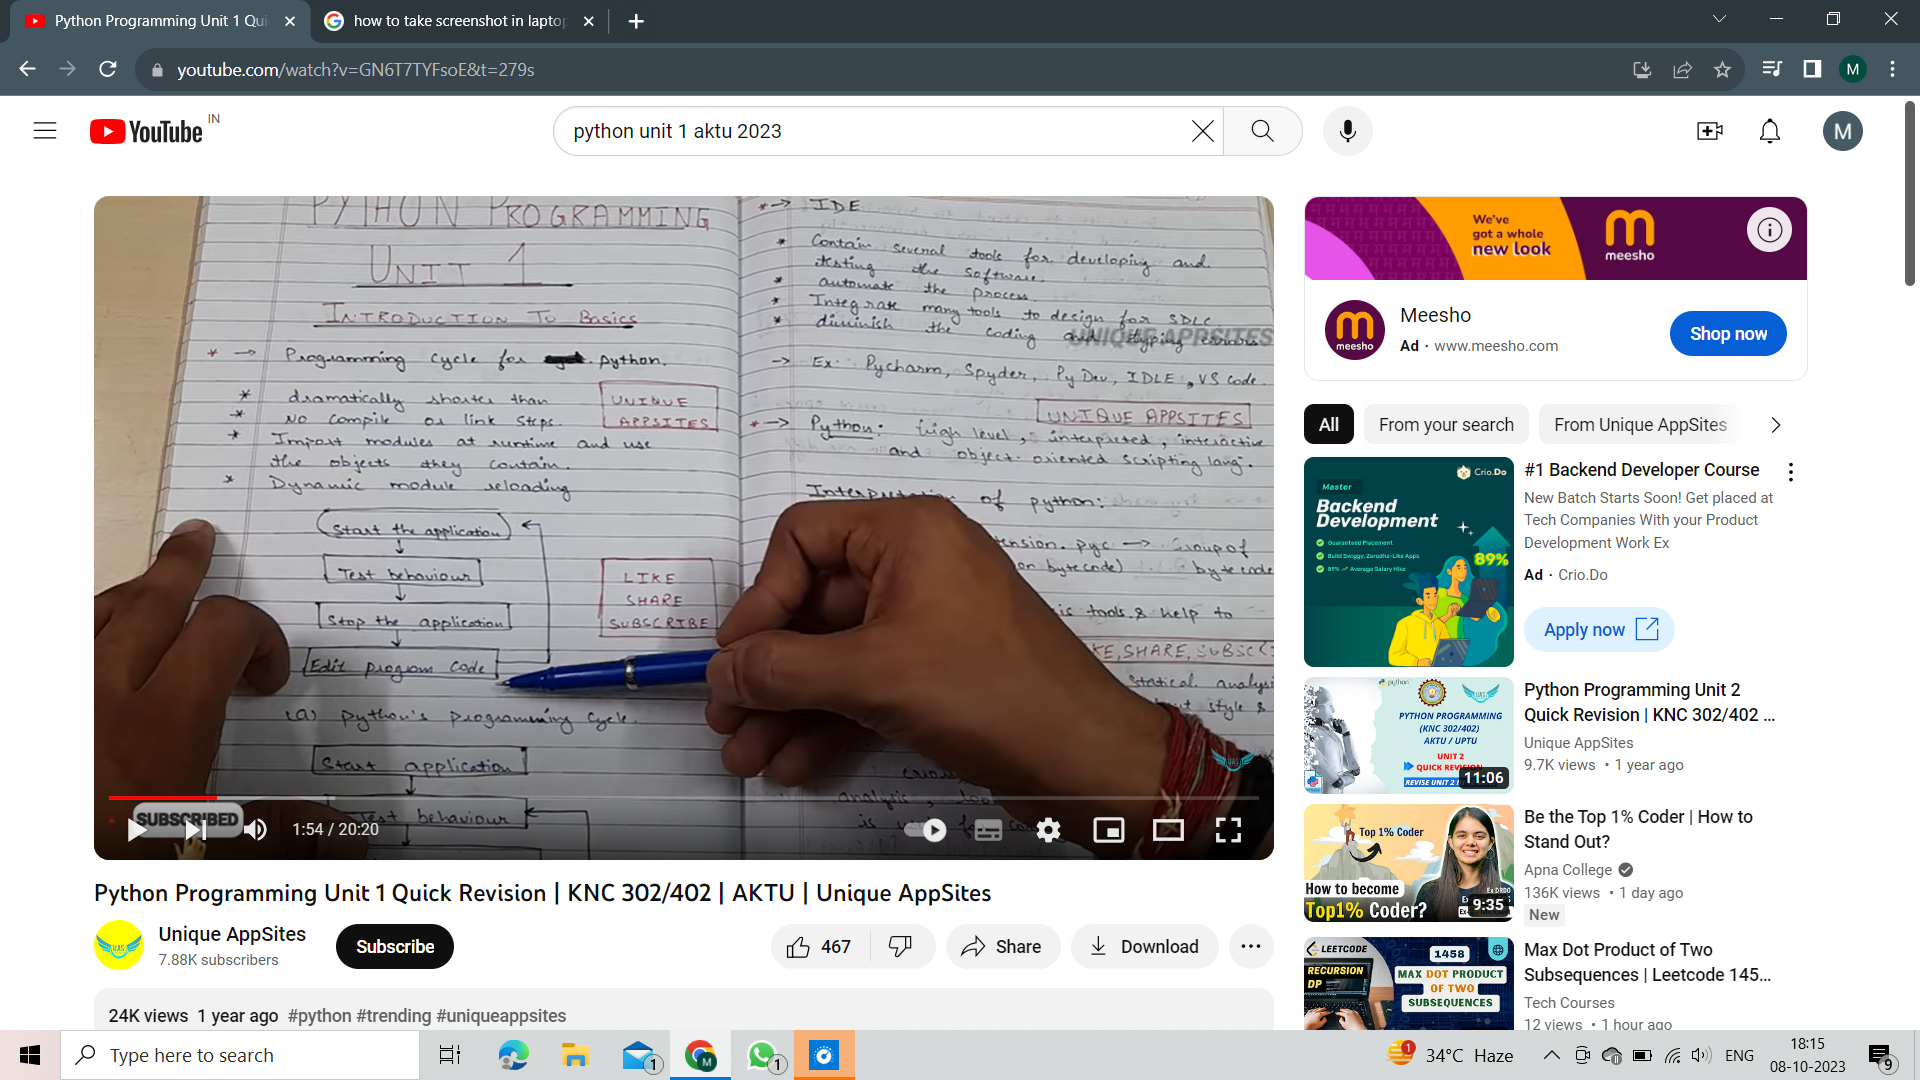 Python Programming Unit 1 Qui
how to take screenshot in laptop
youtube.com/watch?v=GN6T7TYFsoE&t=279s
M
YouTube IN
python unit 1 aktu 2023
M
PYTHON PROGRAMMING
UNIT 1
INTRODUCTION TO Basics
* → Programming cycle for python.
* dramatically shorter than
* No compile or link steps.
* Import modules at runtime and use
the objects they contain.
* Dynamic module reloading
UNIQUE
APPSITES
Start the application
Test behaviour
Stop the application
Edit program code
LIKE
SHARE
SUBSCRIBE
(a) python's programming cycle.
Start application
Test behaviour
* → IDE
* Contain several tools for developing and
testing the software.
* automate the process.
* Integrate many tools to design for SDLC
* diminish the coding and typing errors
UNIQUE APPSITES
→ Ex: Pycharm, Spyder, PyDev, IDLE, VS code.
UNIQUE APPSITES
* → Python: high level, interpreted, interactive
and object-oriented scripting lang.
Interpretation of python:
tension .pyc → Group of
on bytecode) bytecode
tools & help to
KE, SHARE, SUBSCRI
Statical analysi
style &
analysis,
is
SUBSCRIBED
1:54 / 20:20
Python Programming Unit 1 Quick Revision | KNC 302/402 | AKTU | Unique AppSites
UAS
Unique AppSites
7.88K subscribers
Subscribe
467
Share
Download
24K views 1 year ago #python #trending #uniqueappsites
We've
got a whole
new look
meesho
meesho
Meesho
Ad · www.meesho.com
Shop now
All
From your search
From Unique AppSites
Crio.Do
Master
Backend
Development
Guaranteed Placement
Build Swiggy, Zerodha-Like Apps
89% Average Salary Hike
89%
#1 Backend Developer Course
New Batch Starts Soon! Get placed at
Tech Companies With your Product
Development Work Ex
Ad · Crio.Do
Apply now
python
PYTHON PROGRAMMING
(KNC 302/402)
AKTU / UPTU
UNIT 2
QUICK REVISION
REVISE UNIT 2
11:06
Python Programming Unit 2
Quick Revision | KNC 302/402 ...
Unique AppSites
9.7K views • 1 year ago
Top 1% Coder
How to become
Top1% Coder?
Ex DRDO
9:35
Be the Top 1% Coder | How to
Stand Out?
Apna College
136K views • 1 day ago
New
LEETCODE
RECURSION
DP
1458
MAX DOT PRODUCT
OF TWO
SUBSEQUENCES
Max Dot Product of Two
Subsequences | Leetcode 145...
Tech Courses
12 views • 1 hour ago
Type here to search
1
M
1
1
34°C Haze
ENG
18:15
08-10-2023
9